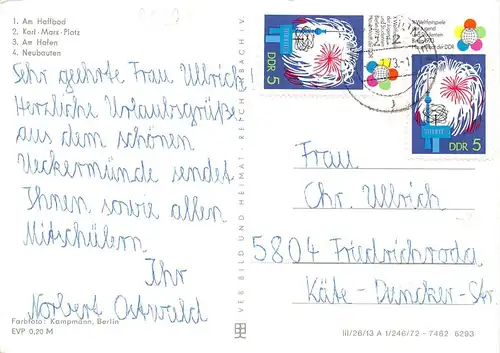 1. Am Haffbad
2. Karl-Marx-Platz
3. Am Hafen
4. Neubauten
Sehr geehrte Frau Ullrich!
Herzliche Urlaubsgrüße
aus dem schönen
Ueckermünde sendet
Ihnen sowie allen
Mitschülern
Ihr
Norbert Ostwald
Farbfoto: Kampmann, Berlin
EVP 0,20 M
VEB BILD UND HEIMAT · REICHENBACH i. V.
DDR 5
DDR 5
Frau
Chr. Ullrich
5804 Friedrichroda
Käte-Duncker-Str.
III/26/13 A 1/246/72 - 7482 6293